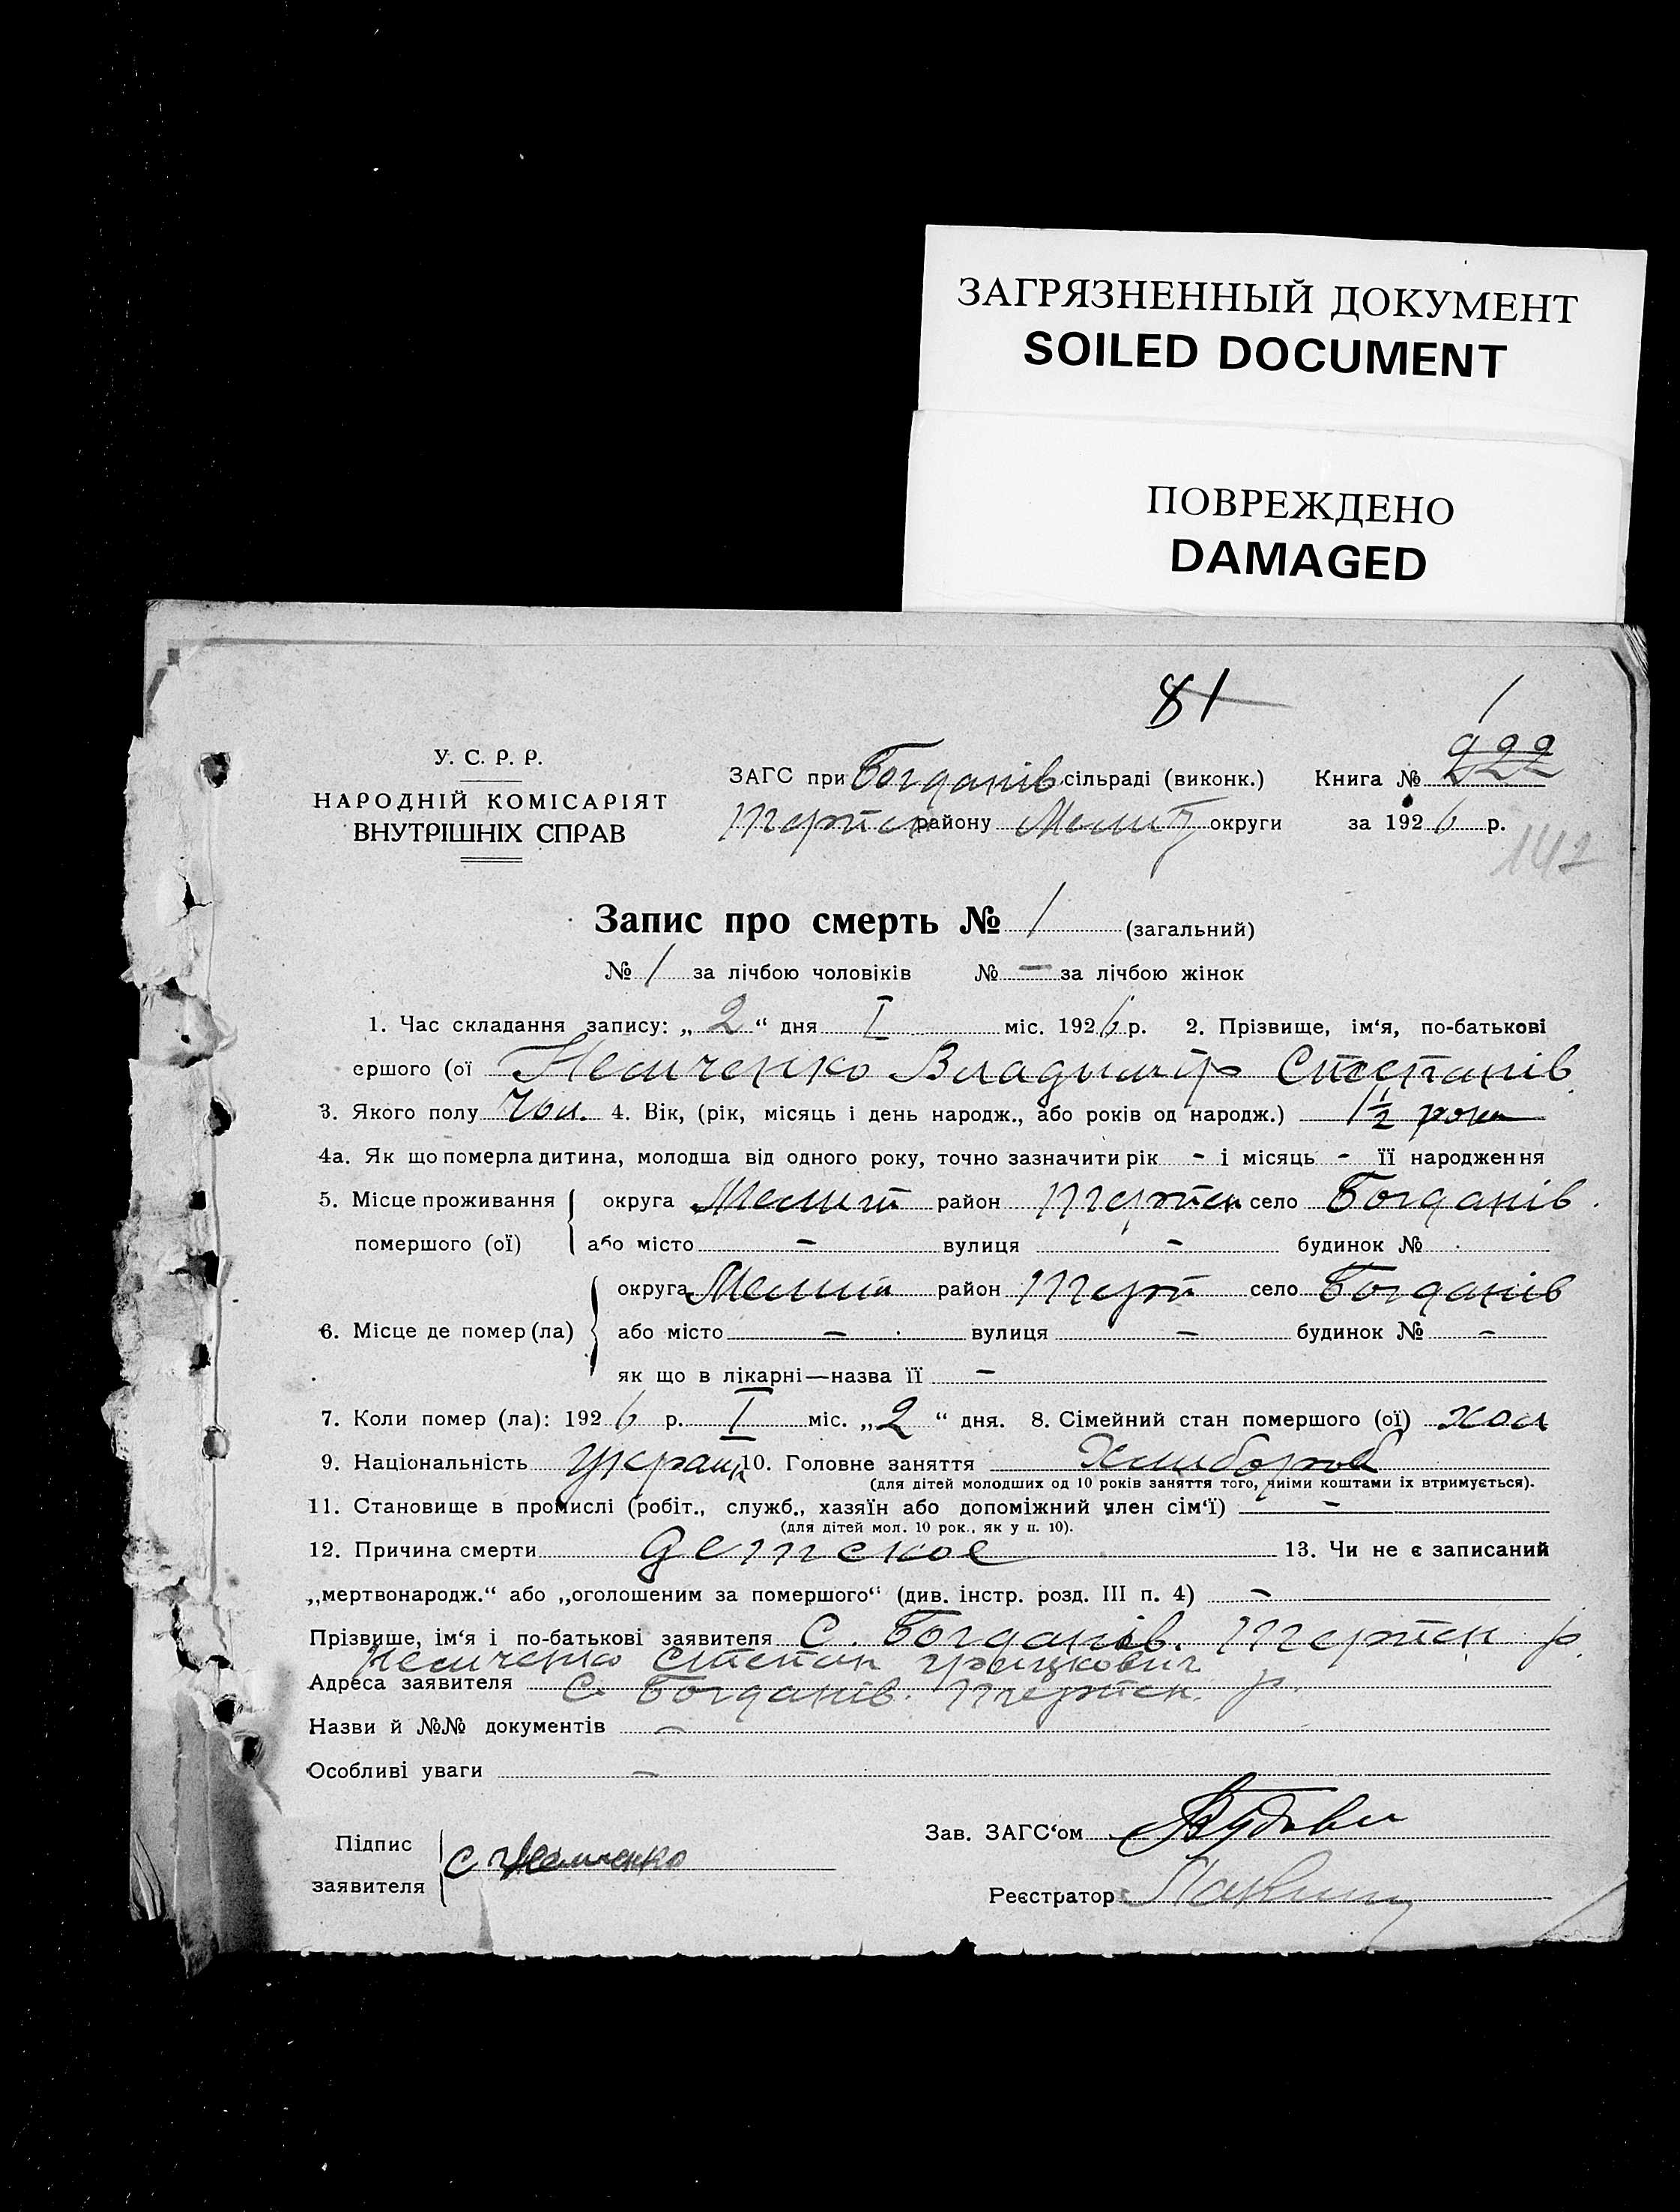 ЗАГРЯЗНЕННЫЙ ДОКУМЕНТ
SOILED DOCUMENT
ПОВРЕЖДЕНО
DAMAGED
81
1
У. С. Р. Р.
НАРОДНІЙ КОМІСАРІЯТ
ВНУТРІШНІХ СПРАВ
ЗАГС при Богданів сільраді (виконк.) Книга № 222
району Мелит округи за 1926 р.
142
Запис про смерть № 1 (загальний)
№ 1 за лічбою чоловіків № — за лічбою жінок
1. Час складання запису: „ 2 “ дня I міс. 1926 р. 2. Прізвище, ім‘я, по-батькові
ершого (ої Немченко Владимір Степанів
3. Якого полу чол. 4. Вік, (рік, місяць і день народж., або років од народж.) 1½ роки
4а. Як що померла дитина, молодша від одного року, точно зазначити рік - і місяць - її народження
5. Місце проживання округа Мелит район село Богданів.
помершого (ої) або місто — вулиця — будинок № .
округа Мелит район село Богданів
6. Місце де помер (ла) або місто — вулиця — будинок № —
як що в лікарні—назва її —
7. Коли помер (ла): 1926 р. I міс. „ 2 “ дня. 8. Сімейний стан помершого (ої) хол
9. Національність україн 10. Головне заняття Хлибороб
(для дітей молодших од 10 років заняття того, чиїми коштами їх втримується).
11. Становище в промислі (робіт., служб., хазяїн або допоміжний член сім‘ї) —
(для дітей мол. 10 рок., як у п. 10).
12. Причина смерти детское 13. Чи не є записаний
„мертвонародж.“ або „оголошеним за помершого“ (див. інстр. розд. III п. 4) —
Прізвище, ім‘я і по-батькові заявителя С. Богданів. р.
Немченко Степан Грицкович
Адреса заявителя С. Богданів. р.
Назви й №№ документів —
Особливі уваги —
Підпис
заявителя С Немченко
Зав. ЗАГС‘ом
Реєстратор